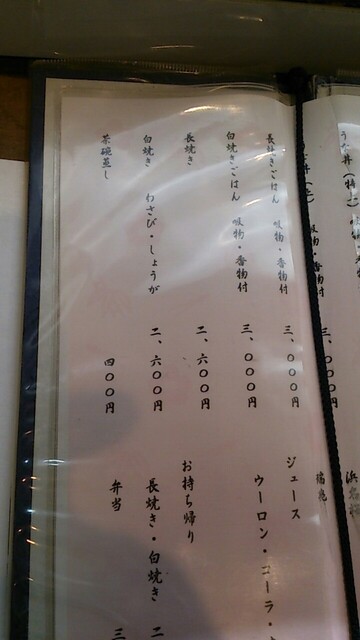 うな丼（特上）
吸物・香物付 三、〇〇〇円
長焼きごはん 吸物・香物付 三、〇〇〇円
白焼きごはん 吸物・香物付 三、〇〇〇円
長焼き 二、六〇〇円
白焼き わさび・しょうが 二、六〇〇円
茶碗蒸し 四〇〇円
ジュース
ウーロン・コーラ・
お持ち帰り
長焼き・白焼き 二
弁当 三